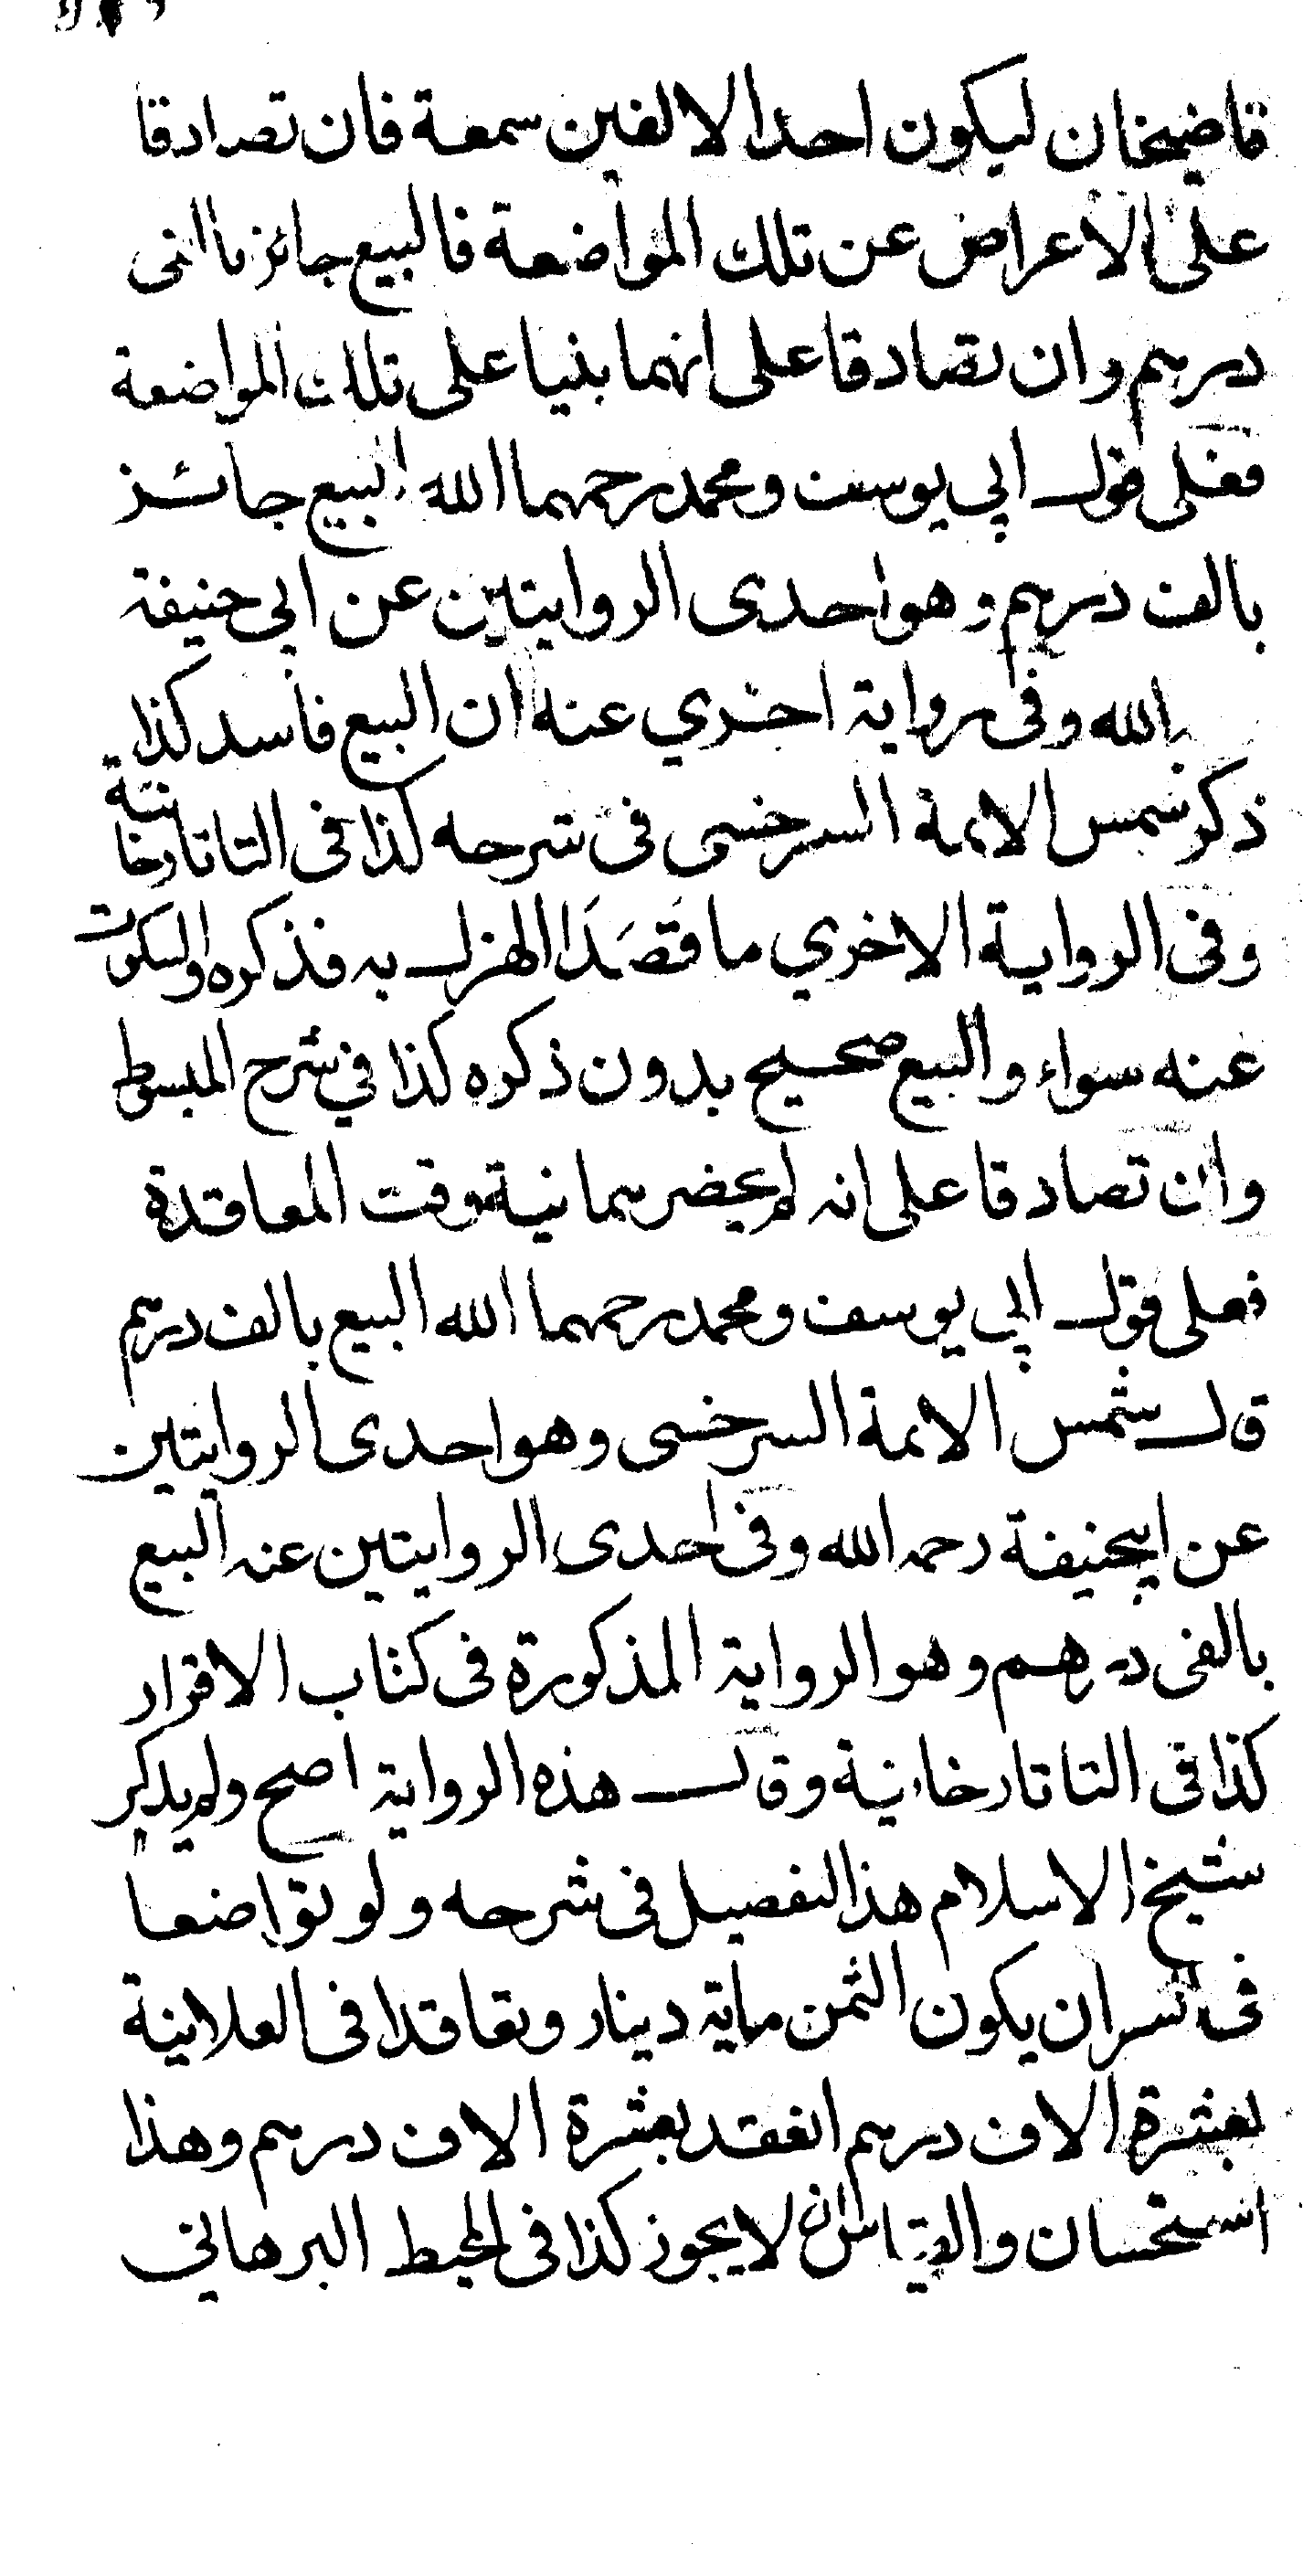 قاضيخان ليكون احد الالفين سمعة فان تصادقا
على الاعراض عن تلك المواضعة فالبيع جائز بالفي
درهم وان تصادقا على انهما بنيا على تلك المواضعة
فعلى قول ابي يوسف ومحمد رحمهما الله البيع جائز
بالف درهم وهو احدى الروايتين عن ابي حنيفة
الله وفى رواية اخري عنه ان البيع فاسد كذا
ذكر شمس الائمة السرخسى فى شرحه كذا فى التاتارخانية
وفى الرواية الاخري ما قَصَدَا الهزل به فذكره والسكوت
عنه سواء والبيع صحيح بدون ذكره كذا في شرح المبسوط
وان تصادقا على انه لم يحضرهما نية وقت المعاقدة
فعلى قول ابي يوسف ومحمد رحمهما الله البيع بالف درهم
قال شمس الائمة السرخسى وهو احدى الروايتين
عن ابيحنيفة رحمه الله وفى احدى الروايتين عنه البيع
بالفى درهم وهو الرواية المذكورة فى كتاب الاقرار
كذا فى التاتارخانية وقال هذه الرواية اصح ولم يذكر
شيخ الاسلام هذا التفصيل فى شرحه ولو تواضعا
فى السر ان يكون الثمن ماية دينار وتعاقدا فى العلانية
بعشرة الاف درهم انعقد بعشرة الاف درهم وهذا
استحسان والقياس ان لا يجوز كذا فى المحيط البرهاني